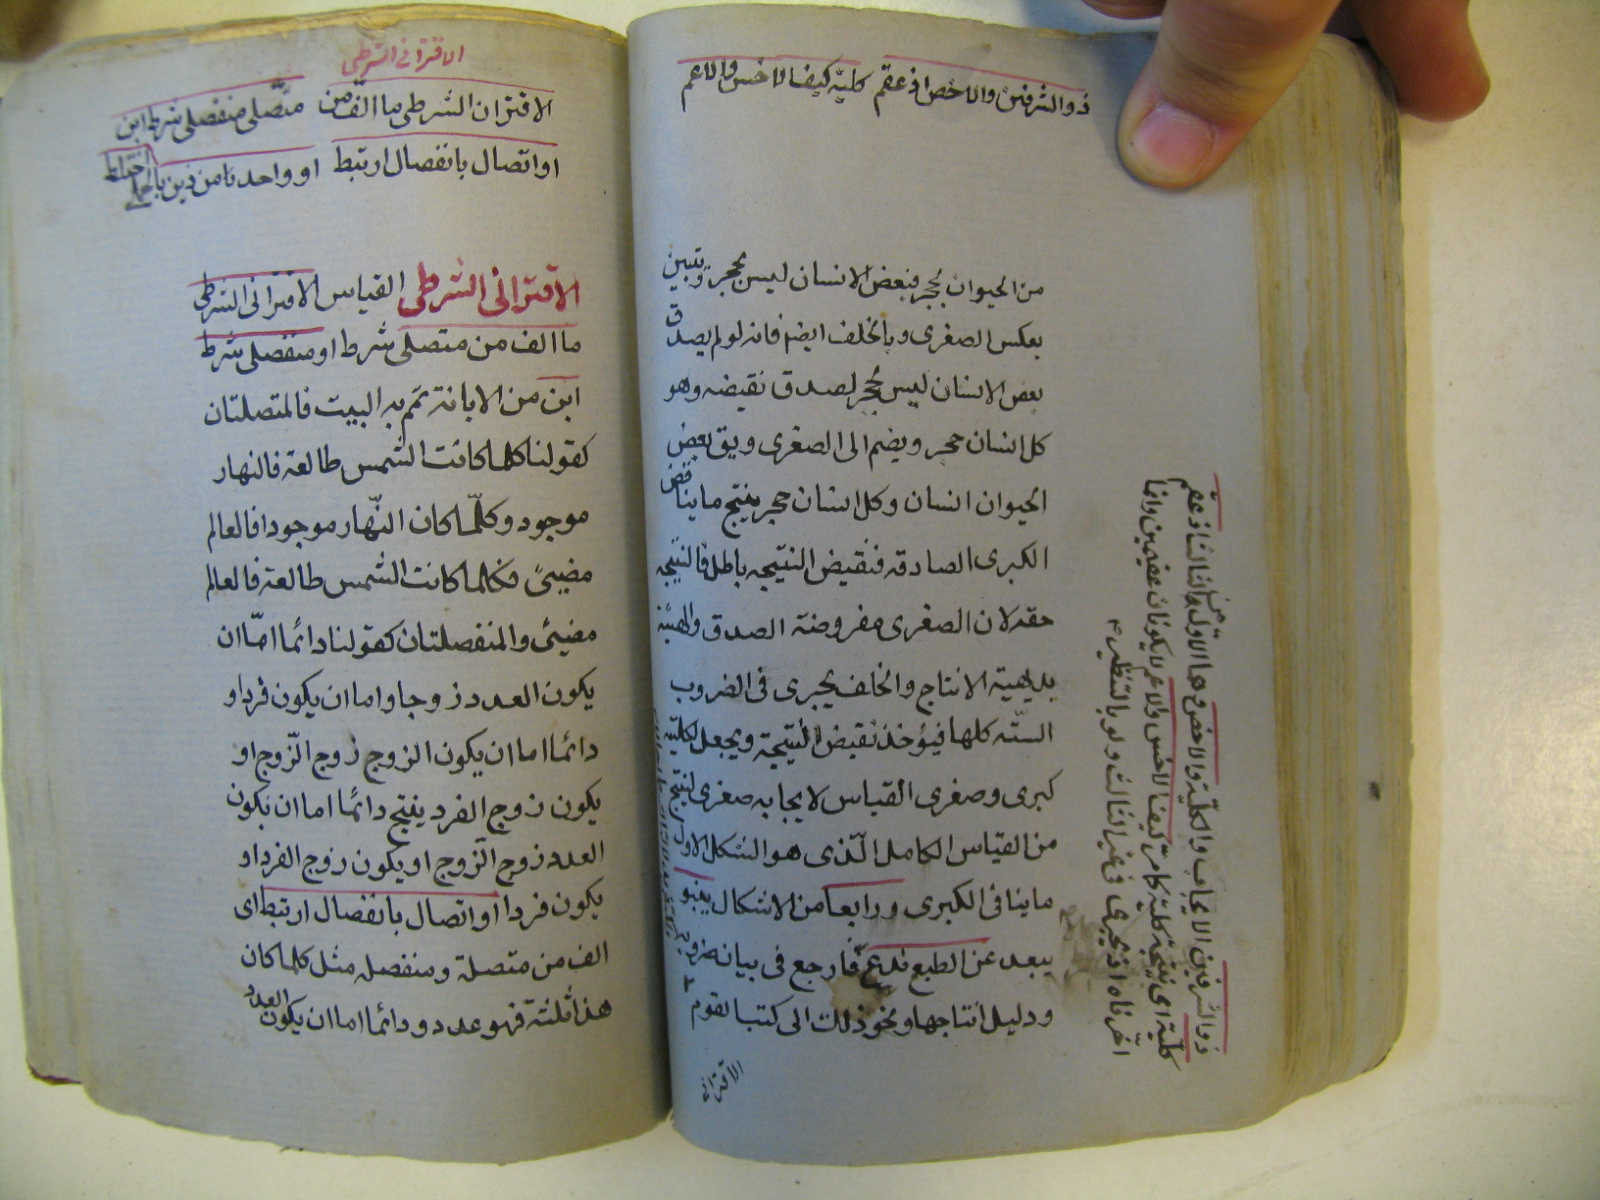 ذو الشرفين والاخص اذ عقم كليّة كيفا الاخس والاعم
من الحيوان بحجر فبعض الانسان ليس بحجر وتبين
بعكس الصغرى وبالخلف ايضا فانه لو لم يصدق
بعض الانسان ليس بحجر لصدق نقيضه وهو
كل انسان حجر ويضم الى الصغرى ويق بعض
الحيوان انسان وكل انسان حجر ينتج ما يناقض
الكبرى الصادقه فنقيض النتيجه باطل فالنتيجه
حقه لان الصغرى مفروضة الصدق والهيئة
بديهية الانتاج والخلف يجرى فى الضروب
الستّه كلها فيؤخذ نقيض النتيجة ويجعل لكليّته
كبرى وصغرى القياس لايجابه صغرى لينتج
من القياس الكامل الّذى هو الشكل الاول
ما ينافى الكبرى ورابعا من الاشكال ينبو
يبعد عن الطبع فدع فارجع فى بيانه ضروبه
ودليل انتاجها ونحو ذلك الى كتب القوم
الاقترانى
ذو الشرفين الايجاب والكليّة والاخص وهما الاول والثالث اذ عقم
كليّة اى نتيجة كلية كامرّ كيفا الاخس والاعم لا يكونان عقيمين وانما
اخّرناه اذ يجرى فى غير الثالث ولو بالتنظير
الاقترانى الشرطى
الاقتران الشرطى ما الّف من متّصلى منفصلى شرط ابن
او اتصال بانفصال ارتبط او واحد نا من ذين بالحملى اختلط
الاقترانى الشرطى القياس الاقترانى الشرطى
ما الف من متصلى شرط او منفصلى شرط
ابن من الابانة تمّم به البيت فالمتصلتان
كقولنا كلما كانت الشمس طالعة فالنهار
موجود وكلّما كان النّهار موجودا فالعالم
مضيئ فكلما كانت الشمس طالعة فالعالم
مضيئ والمنفصلتان كقولنا دائما امّا ان
يكون العدد زوجا واما ان يكون فردا و
دائما اما ان يكون الزوج زوج الزّوج او
يكون زوج الفرد ينتج دائما اما ان يكون
العدد زوج الزّوج او يكون زوج الفرد او
يكون فردا او اتصال بانفصال ارتبط اى
الف من متصلة ومنفصله مثل كلما كان
هذا ثلثة فهو عدد ودائما اما ان يكون العدد